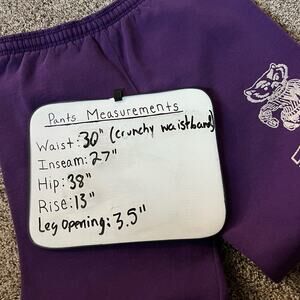 Pants Measurements
Waist: 30" (crunchy waistband)
Inseam: 27"
Hip: 38"
Rise: 13"
Leg Opening: 3.5"